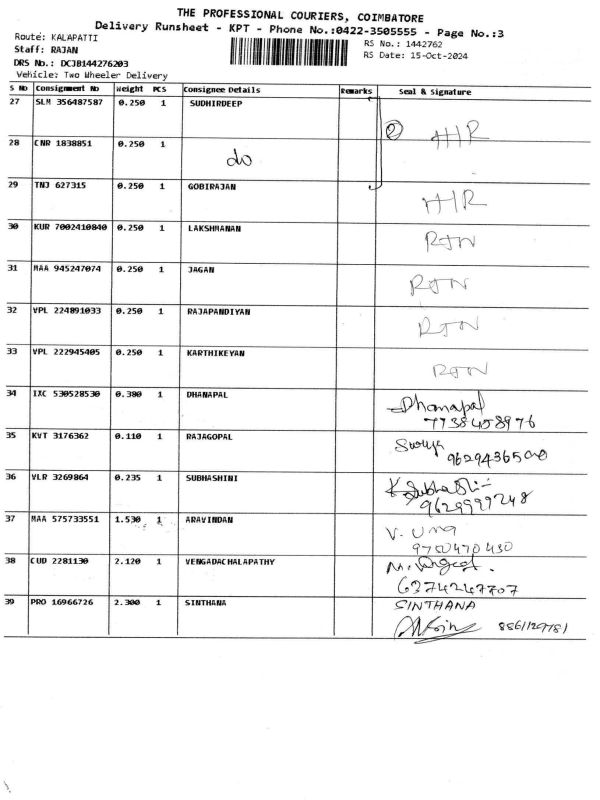 THE PROFESSIONAL COURIERS, COIMBATORE
Delivery Runsheet - KPT - Phone No.:0422-3505555 - Page No.:3
Route: KALAPATTI
RS No.: 1442762
Staff: RAJAN
RS Date: 15-Oct-2024
DRS No.: DCJB144276203
Vehicle: Two Wheeler Delivery
S No Consignment No Weight PCS Consignee Details Remarks Seal & Signature
27 SLM 356487587 0.250 1 SUDHIRDEEP
28 CNR 1838851 0.250 1 do
29 TNJ 627315 0.250 1 GOBIRAJAN
30 KUR 7002410840 0.250 1 LAKSHMANAN RTN
31 MAA 945247074 0.250 1 JAGAN RTN
32 VPL 224891033 0.250 1 RAJAPANDIYAN RTN
33 VPL 222945405 0.250 1 KARTHIKEYAN RTN
34 IXC 530528530 0.380 1 DHANAPAL Dhanapal
7738458976
35 KVT 3176362 0.110 1 RAJAGOPAL Surya
9629436500
36 VLR 3269864 0.235 1 SUBHASHINI K. Subhashini
9629999248
37 MAA 575733551 1.530 1 ARAVINDAN V. Uma
9750470430
38 CUD 2281130 2.120 1 VENGADACHALAPATHY
6374247707
39 PRO 16966726 2.300 1 SINTHANA SINTHANA
8861129781